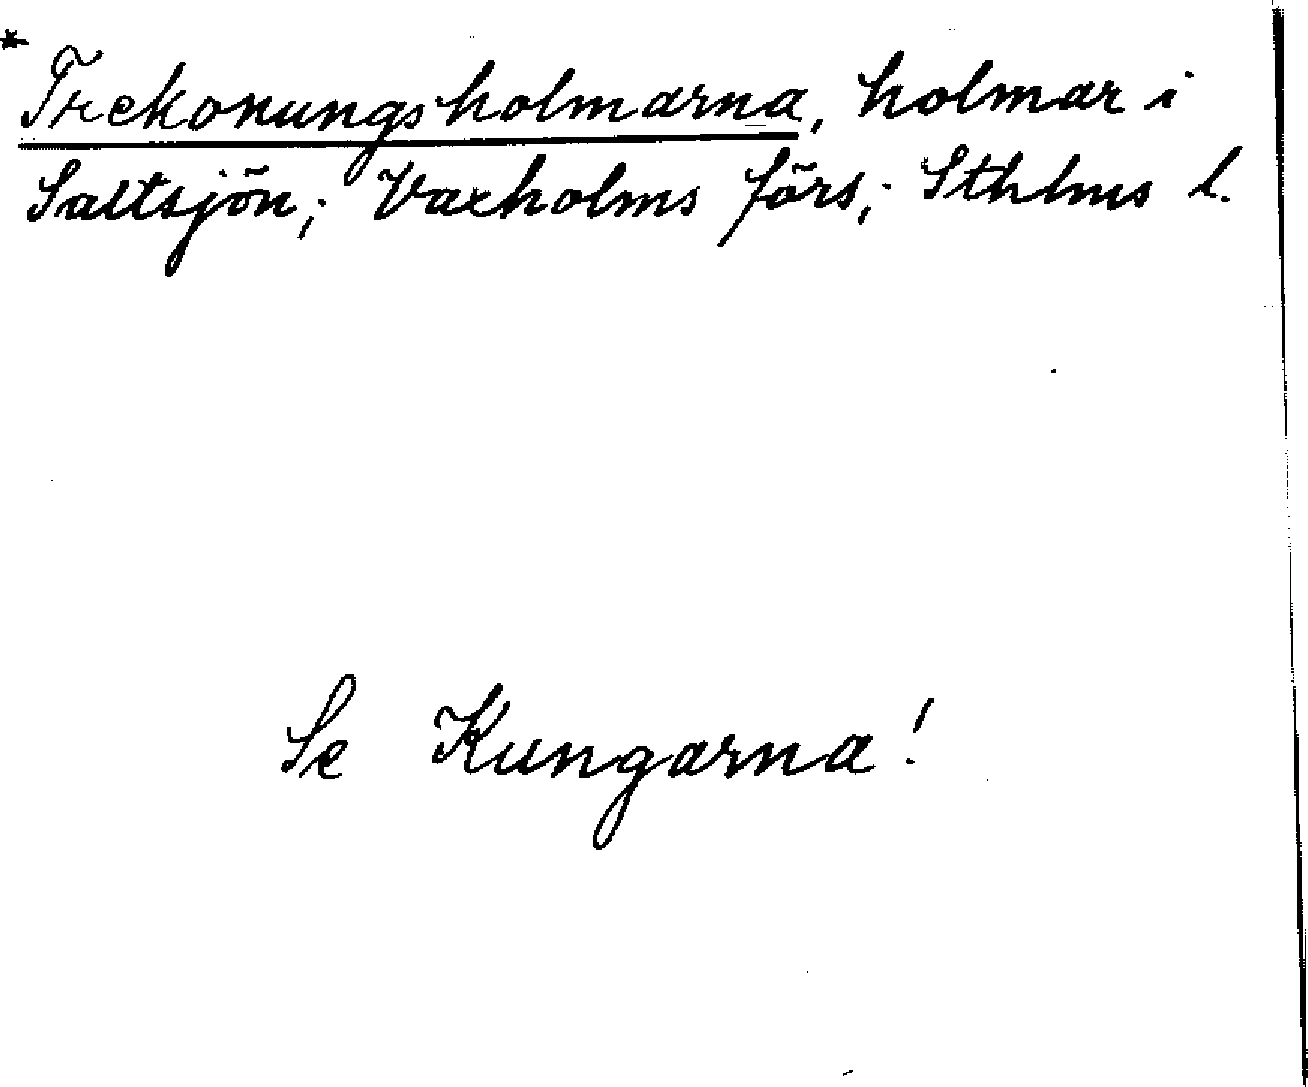 * Trekonungsholmarna, holmar i
Saltsjön; Vaxholms förs; Sthlms l.
Se Kungarna!